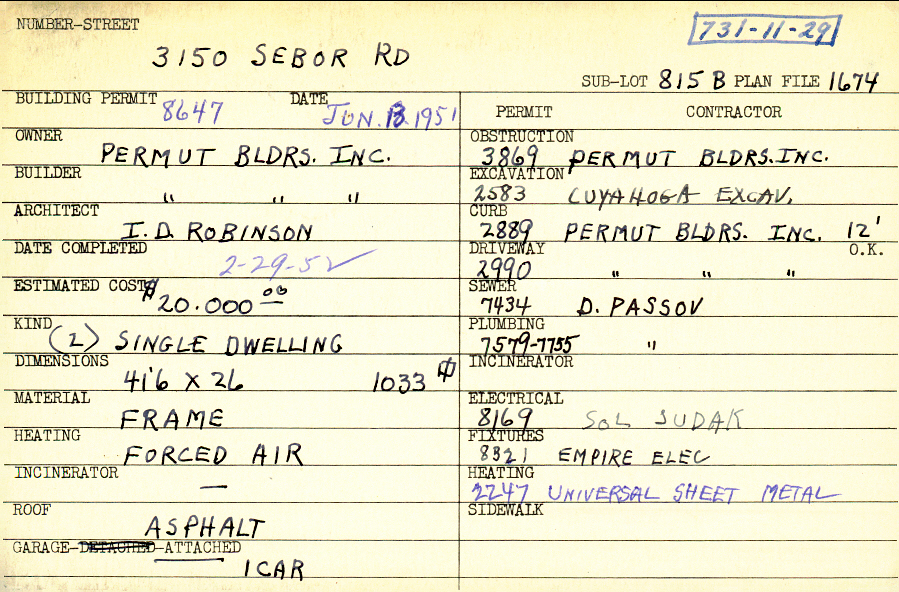 NUMBER-STREET
731-11-29
3150 SEBOR RD
SUB-LOT 815 B PLAN FILE 1674
BUILDING PERMIT 8647 DATE JUN. 13. 1951
PERMIT CONTRACTOR
OWNER PERMUT BLDRS. INC.
OBSTRUCTION 3869 PERMUT BLDRS. INC.
BUILDER " " "
EXCAVATION 2583 CUYAHOGA EXCAV.
ARCHITECT I. D. ROBINSON
CURB 2889 PERMUT BLDRS. INC. 12' O.K.
DATE COMPLETED 2-29-52 ✓
DRIVEWAY 2990 " " "
ESTIMATED COST $20.000 00
SEWER 7434 D. PASSOV
KIND (2) SINGLE DWELLING
PLUMBING 7579-7755 "
DIMENSIONS 41'6 X 26 1033
INCINERATOR
MATERIAL FRAME
ELECTRICAL 8169 SOL SUDAK
HEATING FORCED AIR
FIXTURES 8321 EMPIRE ELEC
INCINERATOR —
HEATING 2247 UNIVERSAL SHEET METAL
ROOF ASPHALT
SIDEWALK
GARAGE-DETACHED-ATTACHED
1 CAR